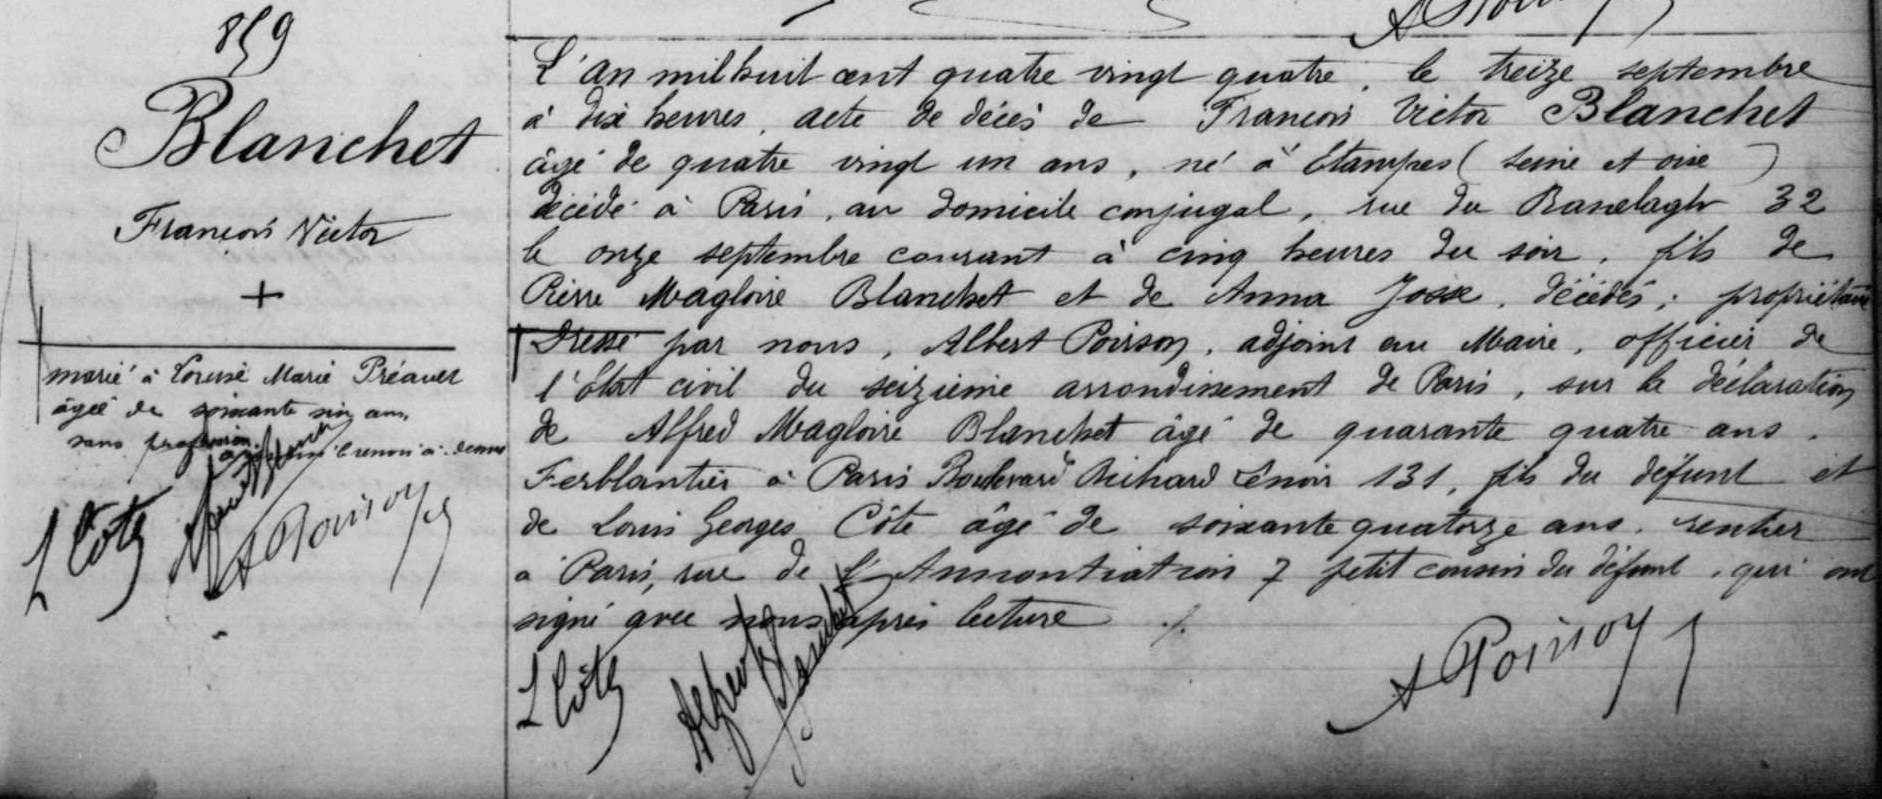 859
Blanchet
François Victor
+
marié à Louise Marie Préaver
âgée de soixante six ans,
sans profession.
L Côte
A Poisson
L'an mil huit cent quatre vingt quatre, le treize septembre
à dix heures, acte de décès de François Victor Blanchet
âgé de quatre vingt un ans, né à Etampes (Seine et oise)
décédé à Paris, au domicile conjugal, rue du Ranelagh 32
le onze septembre courant à cinq heures du soir, fils de
Pierre Magloire Blanchet et de Anna Josse, décédés; propriétaire
Dressé par nous, Albert Poisson, adjoint au Maire, officier de
l'Etat civil du seizième arrondissement de Paris, sur la déclaration
de Alfred Magloire Blanchet âgé de quarante quatre ans.
Ferblantier à Paris Boulevard Richard Lenoir 131, fils du défunt et
de Louis Georges Côte âgé de soixante quatorze ans, rentier
à Paris, rue de l'Annontiation 7 petit cousin du défunt, qui ont
signé avec nous après lecture ./.
L Côte
Alfred Blanchet
A Poisson